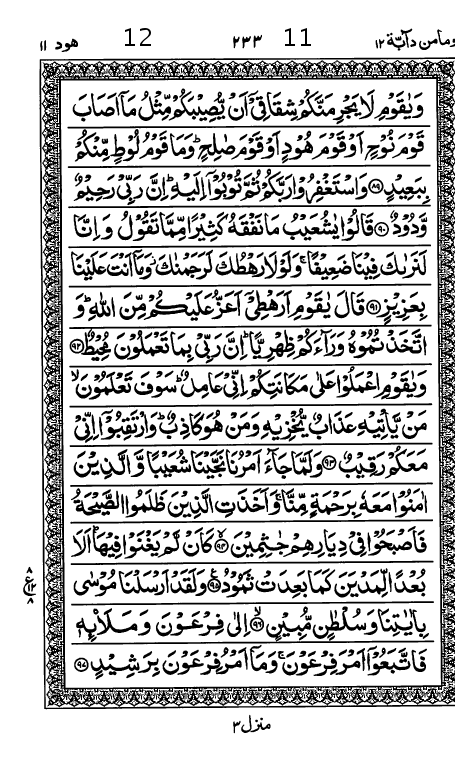 ومامن دآبّة ١٢ 11 ٢٣٣ 12 هود ١١
وَيٰقَوْمِ لَا يَجْرِمَنَّكُمْ شِقَاقِيْٓ اَنْ يُّصِيْبَكُمْ مِّثْلُ مَآ اَصَابَ
قَوْمَ نُوْحٍ اَوْ قَوْمَ هُوْدٍ اَوْ قَوْمَ صٰلِحٍ ؕ وَمَا قَوْمُ لُوْطٍ مِّنْكُمْ
بِبَعِيْدٍ ﴿۸۹﴾ وَاسْتَغْفِرُوْا رَبَّكُمْ ثُمَّ تُوْبُوْٓا اِلَيْهِ ؕ اِنَّ رَبِّيْ رَحِيْمٌ
وَّدُوْدٌ ﴿۹۰﴾ قَالُوْا يٰشُعَيْبُ مَا نَفْقَهُ كَثِيْرًا مِّمَّا تَقُوْلُ وَاِنَّا
لَنَرٰىكَ فِيْنَا ضَعِيْفًا ۚ وَلَوْلَا رَهْطُكَ لَرَجَمْنٰكَ ؗ وَمَآ اَنْتَ عَلَيْنَا
بِعَزِيْزٍ ﴿۹۱﴾ قَالَ يٰقَوْمِ اَرَهْطِيْٓ اَعَزُّ عَلَيْكُمْ مِّنَ اللّٰهِ ؕ وَ
اتَّخَذْتُمُوْهُ وَرَآءَكُمْ ظِهْرِيًّا ؕ اِنَّ رَبِّيْ بِمَا تَعْمَلُوْنَ مُحِيْطٌ ﴿۹۲﴾
وَيٰقَوْمِ اعْمَلُوْا عَلٰى مَكَانَتِكُمْ اِنِّيْ عَامِلٌ ؕ سَوْفَ تَعْلَمُوْنَ ۙ
مَنْ يَّاْتِيْهِ عَذَابٌ يُّخْزِيْهِ وَمَنْ هُوَ كَاذِبٌ ؕ وَارْتَقِبُوْٓا اِنِّيْ
مَعَكُمْ رَقِيْبٌ ﴿۹۳﴾ وَلَمَّا جَآءَ اَمْرُنَا نَجَّيْنَا شُعَيْبًا وَّالَّذِيْنَ
اٰمَنُوْا مَعَهٗ بِرَحْمَةٍ مِّنَّا ۚ وَاَخَذَتِ الَّذِيْنَ ظَلَمُوا الصَّيْحَةُ
فَاَصْبَحُوْا فِيْ دِيَارِهِمْ جٰثِمِيْنَ ﴿۹۴﴾ كَاَنْ لَّمْ يَغْنَوْا فِيْهَا ؕ اَلَا
بُعْدًا لِّمَدْيَنَ كَمَا بَعِدَتْ ثَمُوْدُ ﴿۹۵﴾ وَلَقَدْ اَرْسَلْنَا مُوْسٰى
بِاٰيٰتِنَا وَسُلْطٰنٍ مُّبِيْنٍ ﴿۹۶﴾ اِلٰى فِرْعَوْنَ وَمَلَا۟ئِهٖ
فَاتَّبَعُوْٓا اَمْرَ فِرْعَوْنَ ۚ وَمَآ اَمْرُ فِرْعَوْنَ بِرَشِيْدٍ ﴿۹۷﴾
۸
ع
۱۲
۸
منزل ٣